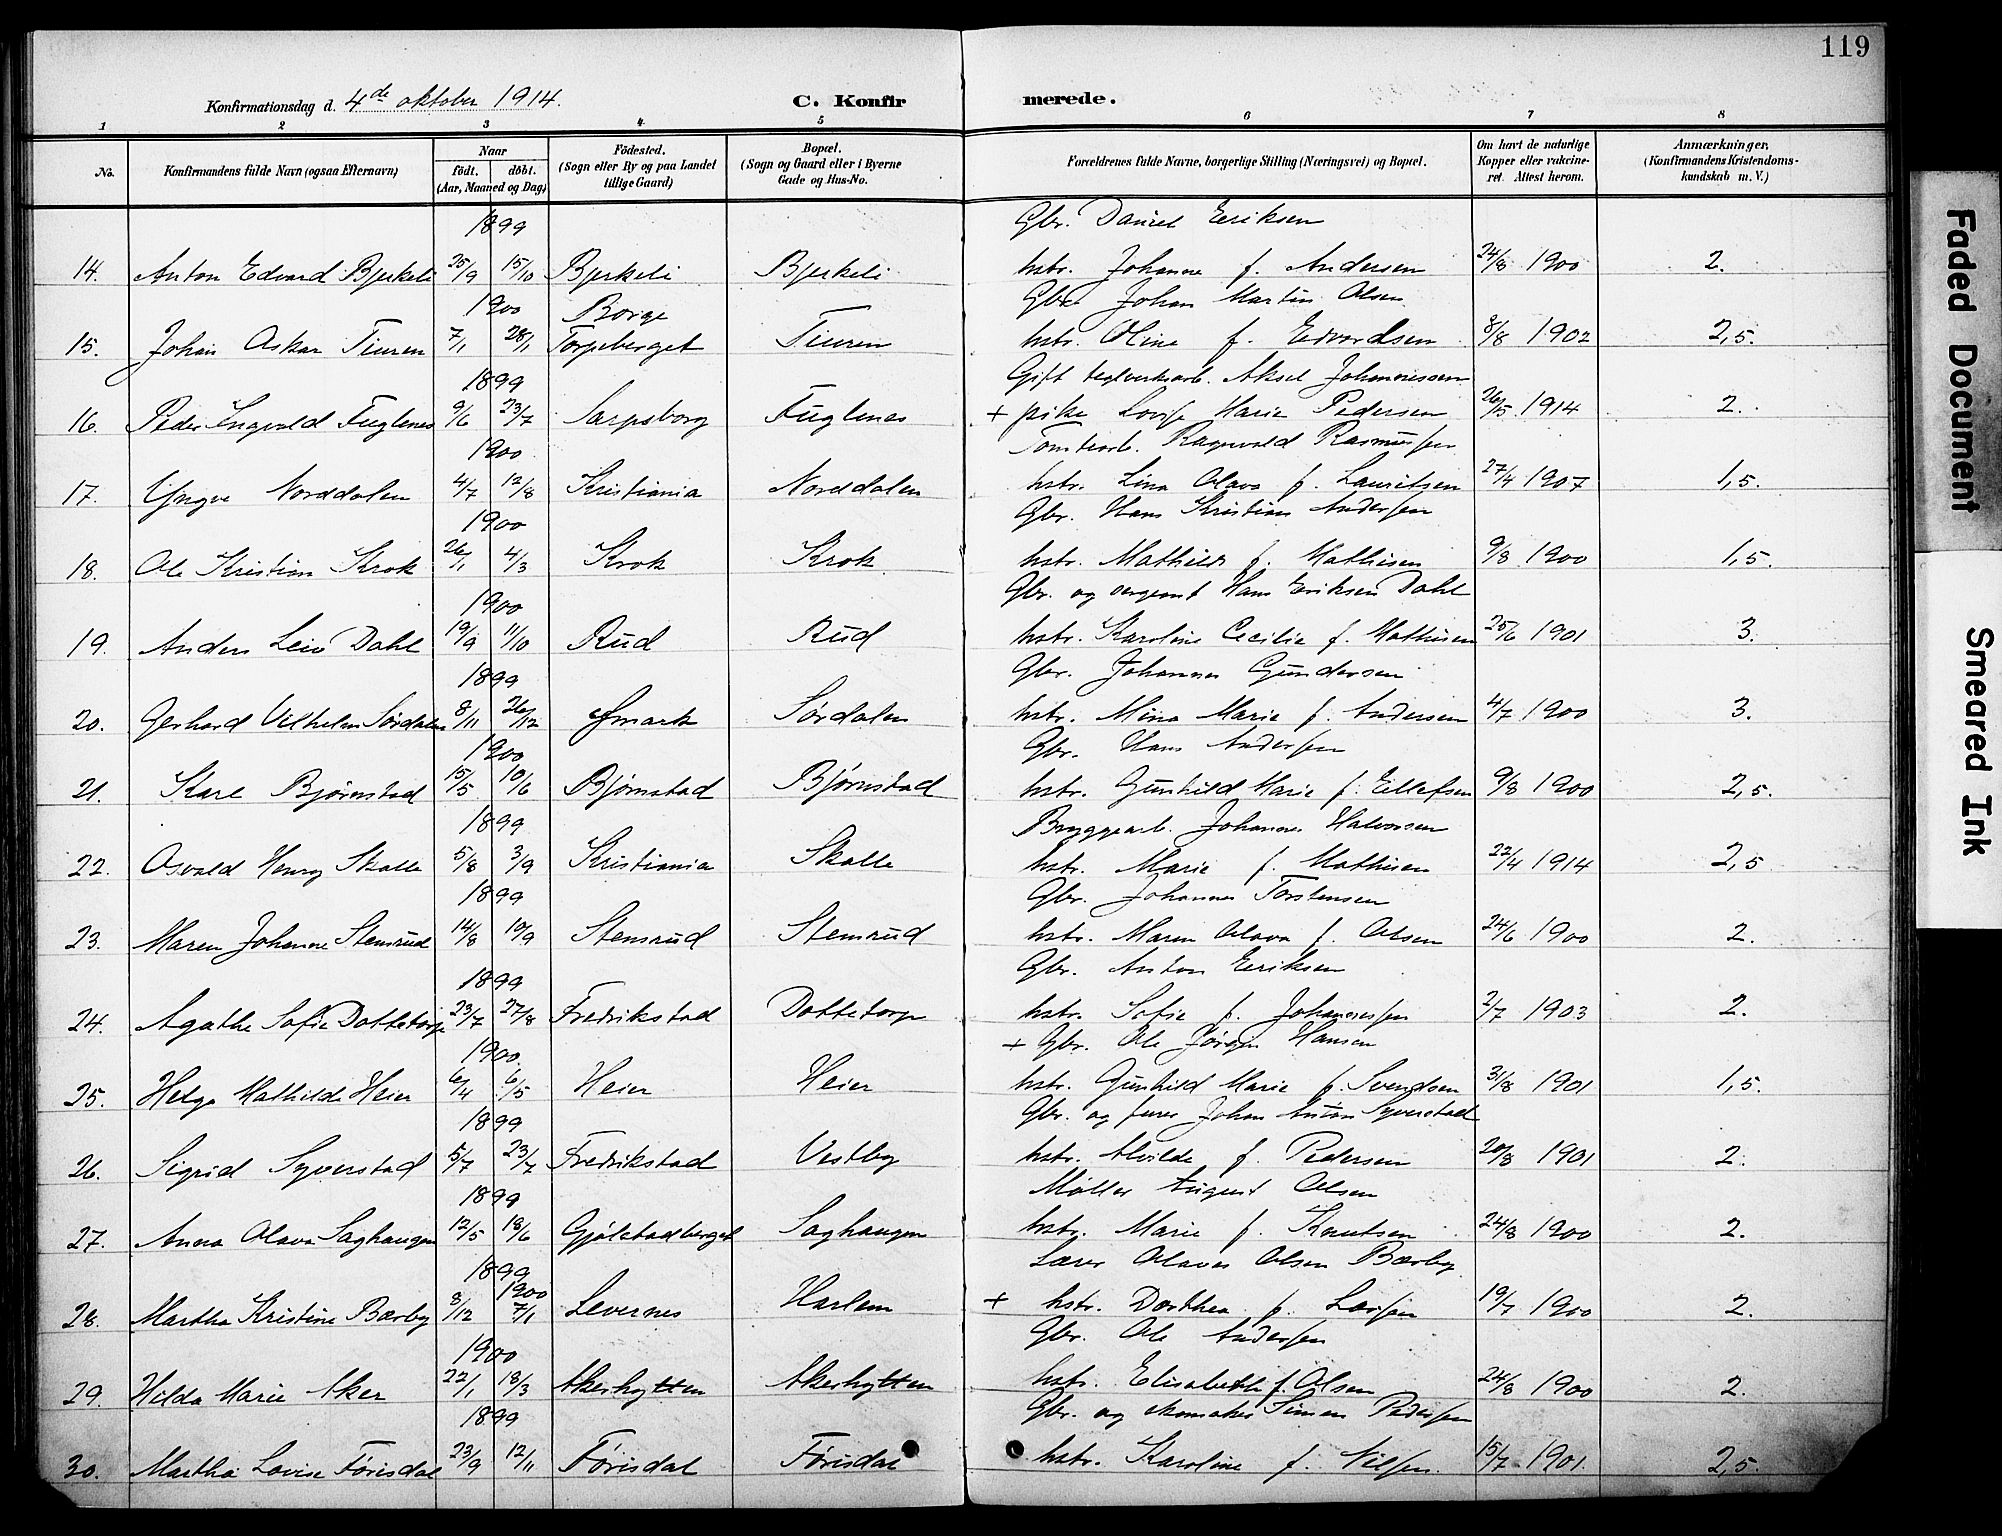 119
Konfirmationsdag d. 4de oktober 1914.
C. Konfirmerede.
1 2 3 4 5 6 7 8
No.
Konfirmandens fulde Navn (ogsaa Efternavn)
Naar
født. døbt.
(Aar, Maaned og Dag)
Fødested.
(Sogn eller By og paa Landet
tillige Gaard)
Bopæl.
(Sogn og Gaard eller i Byerne
Gade og Hus-No.
Forældrenes fulde Navne, borgerlige Stilling (Næringsvei) og Bopæl.
Om havt de naturlige
Kopper eller vakcine-
ret. Attest herom.
Anmærkninger,
(Konfirmandens Kristendoms-
kundskab m. V.)
1899 Gbr. Daniel Eriksen
14. Anton Edvard Bjerkeli 25/9 15/10 Bjerkeli Bjerkeli hstr. Johanne f. Andersen 24/8 1900 2.
1900 Borge Gbr. Johan Martin Olsen
15. Johan Oskar Tiuren 7/1 28/1 Torpeberget Tiuren hstr. Oline f. Edvardsen 8/8 1902 2,5.
1899 Gift teglverksarb. Aksel Johannessen
16. Peder Ingvald Fuglenes 9/6 23/7 Sarpsborg Fuglenes + pike Lovise Marie Pedersen 26/5 1914 2.
1900 Tomtearb. Ragnvald Rasmussen
17. Yngve Norddalen 4/7 12/8 Kristiania Norddalen hstr. Lina Olava f. Lauritsen 27/4 1907 1,5.
1900 Gbr. Hans Kristian Andersen
18. Ole Kristian Krok 26/1 4/3 Krok Krok hstr. Mathilde f. Mathisen 9/8 1900 1,5.
1900 Gbr. og sergeant Hans Eriksen Dahl
19. Anders Leiv Dahl 19/9 11/10 Rud Rud hstr. Karoline Cecilie f. Mathisen 25/6 1901 3.
1899 Gbr. Johannes Gundersen
20. Gerhard Vilhelm Sørdalen 8/11 26/12 Ømark Sørdalen hstr. Mina Marie f. Andersen 4/7 1900 3.
1900 Gbr. Hans Andersen
21. Karl Bjørnstad 15/5 10/6 Bjørnstad Bjørnstad hstr. Gunhild Marie f. Ellefsen 9/8 1900 2,5.
1899 Bryggearb. Johannes Halvorsen
22. Osvald Henry Skolle 5/8 3/9 Kristiania Skolle hstr. Marie f. Mathisen 22/4 1914 2,5
1899 Gbr. Johannes Torstensen
23. Maren Johanne Stemsrud 14/8 10/9 Stemsrud Stemsrud hstr. Maren Olava f. Olsen 24/6 1900 2.
1899 Gbr. Anton Eriksen
24. Agathe Sofie Dottetorp 23/7 27/8 Fredrikstad Dottetorp hstr. Sofie f. Johannessen 2/7 1903 2.
1900. + Gbr. Ole Jørgen Hansen
25. Helga Mathilde Heier 6/4 6/5 Heier Heier hstr. Gunhild Marie f. Svendsen 31/8 1901 1,5.
1899 Gbr. og furer Johan Anton Syverstad
26. Sigrid Syverstad 5/7 23/7 Fredrikstad Vestby hstr. Alvilde f. Pedersen 20/8 1901 2.
1899 Møller August Olsen
27. Anna Olava Saghaugen 12/5 18/6 Gjølstadberget Saghaugen hstr. Marie f. Knutsen 24/8 1900 2.
1899 Lærer Olaves Olsen Bærby
28. Martha Kristine Bærby 8/12 1900 7/1 Levernes Harlem + hstr. Dorthea f. Larsen 19/7 1900 2.
1900 Gbr. Ole Andersen
29. Hilda Marie Aker 22/1 18/3 Akerhytten Akerhytten hstr. Elisabeth f. Olsen 24/8 1900 2.
1899 Gbr. og skomaker Simen Pedersen
30. Martha Lovise Førisdal 23/9 12/11 Førisdal Førisdal hstr. Karoline f. Nilsen. 15/7 1901. 2,5.
Faded Document
Smeared Ink